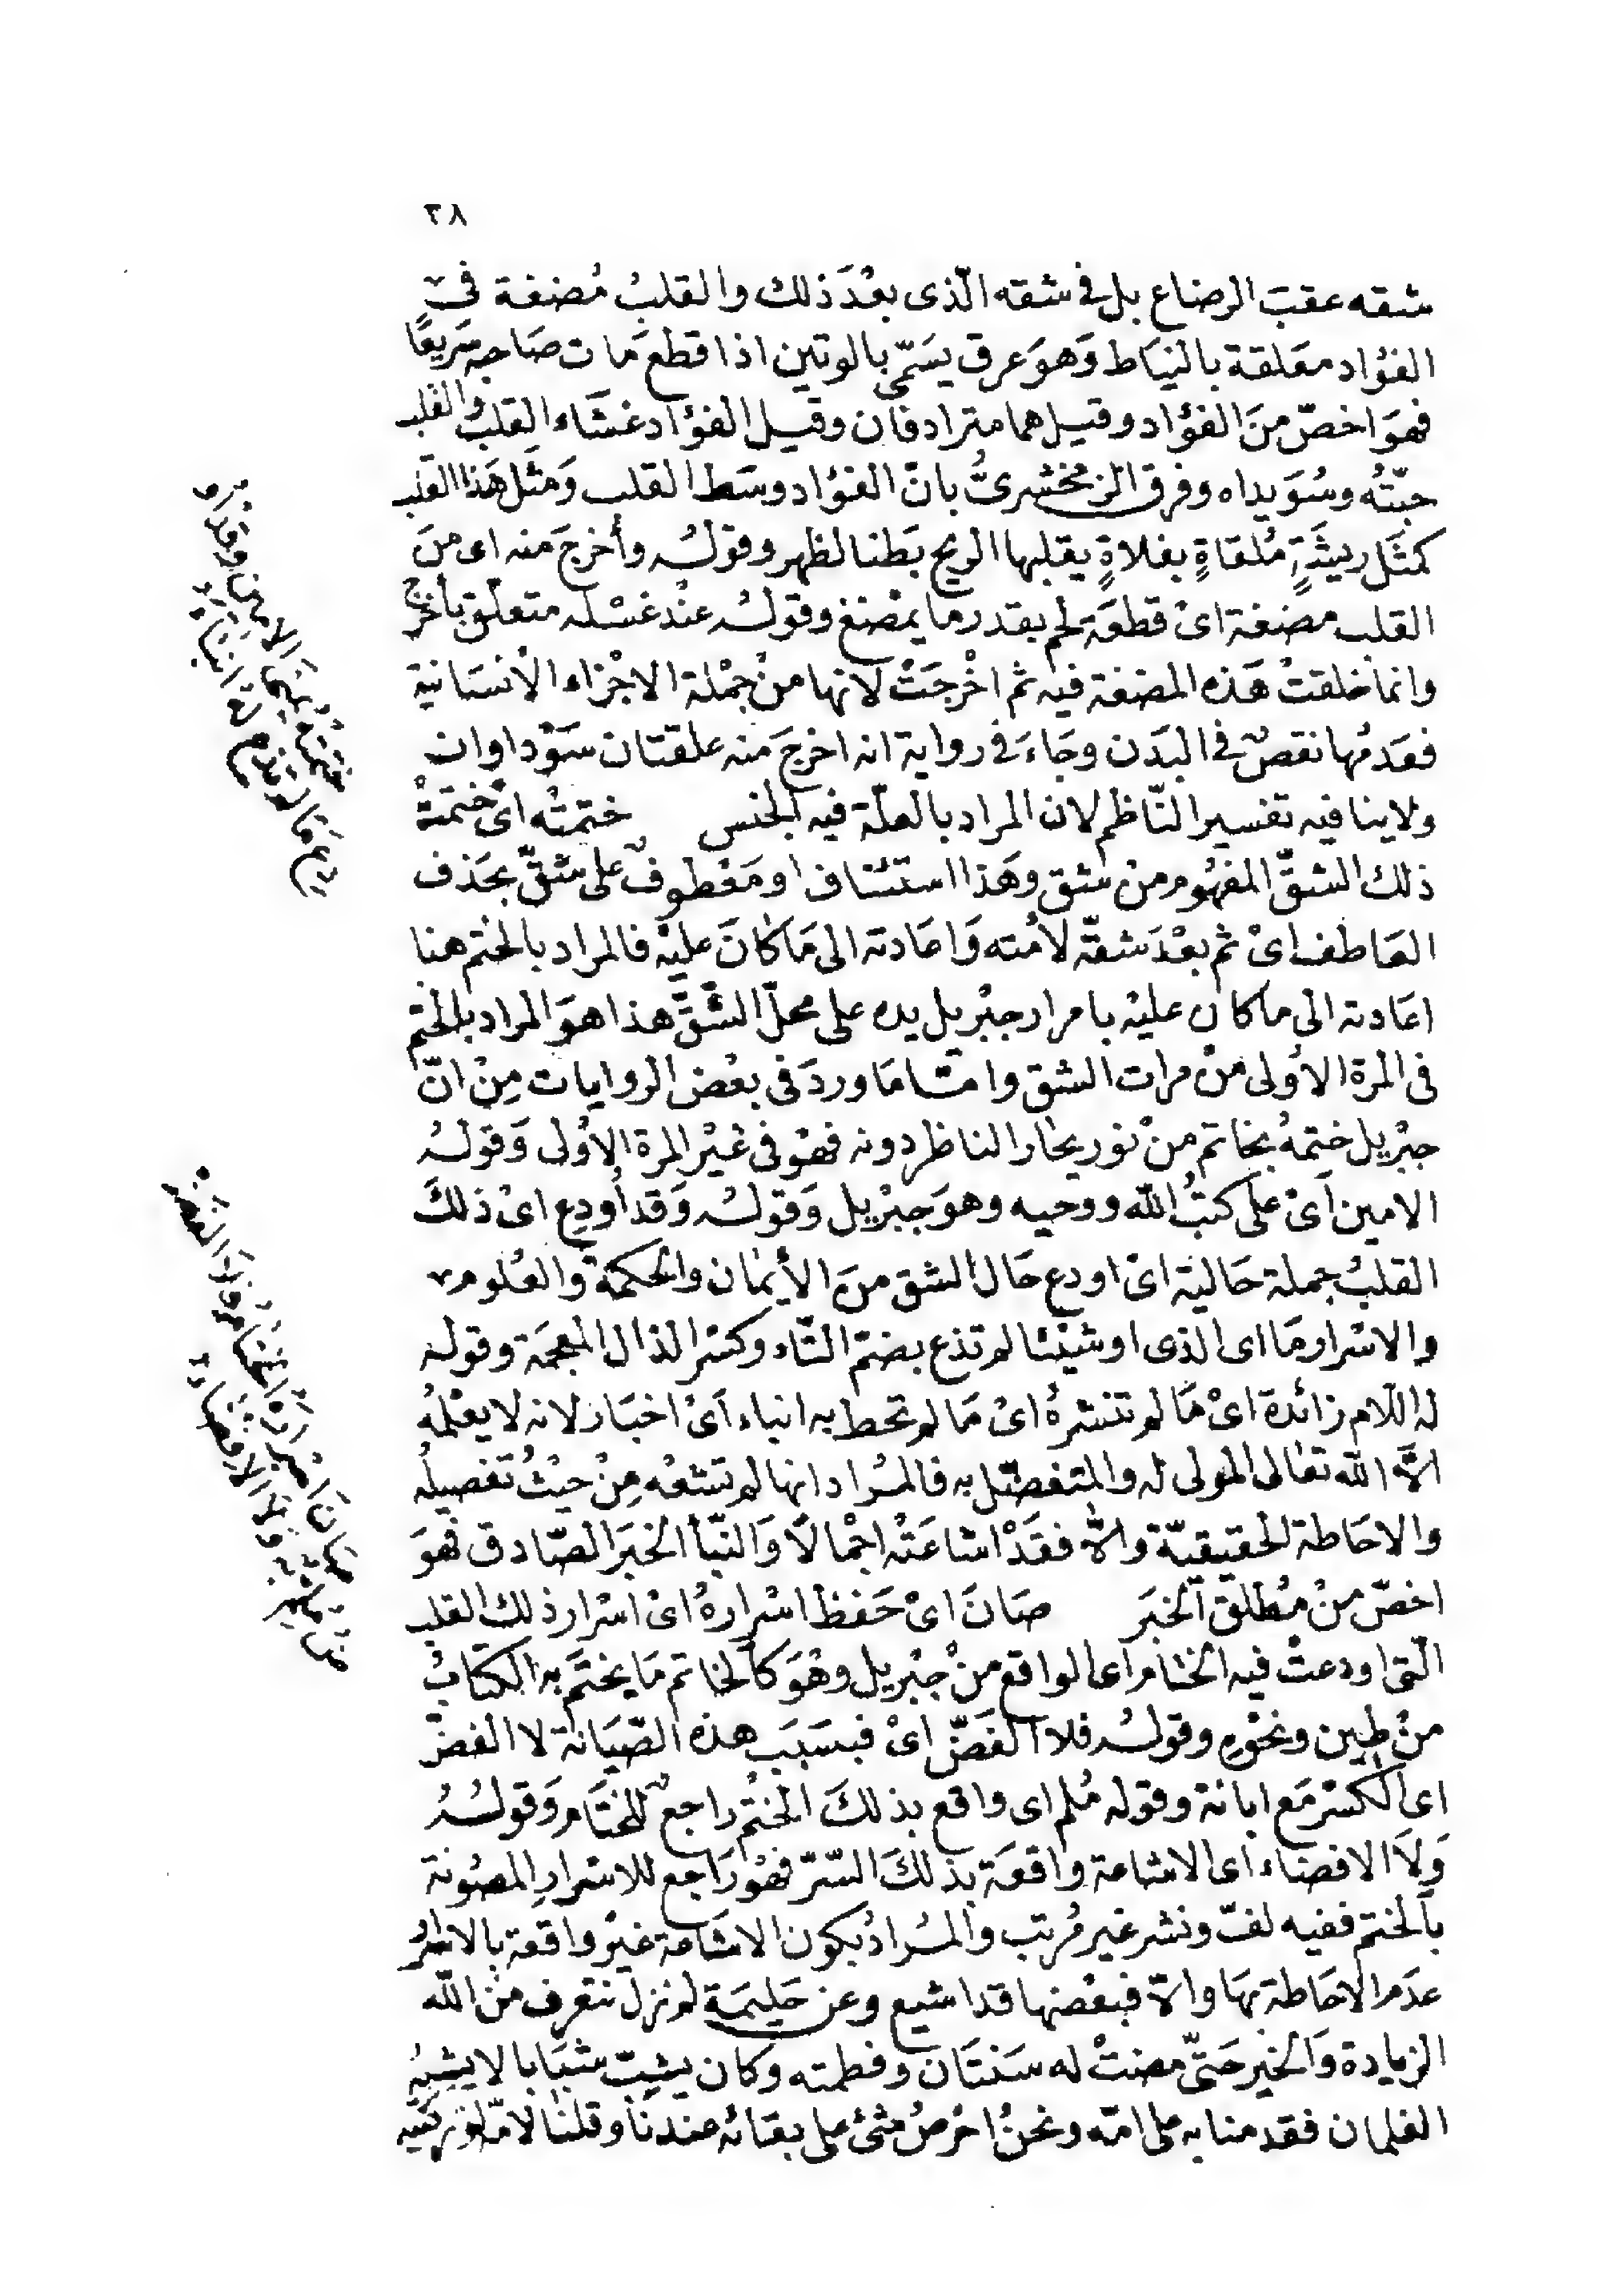 ٣٨
شقه عقبَ الرضاع بل في شقه الّذى بعْدَ ذلك والقلبُ مُضغة في
الفؤاد معَلقة بالنيَاط وَهوَ عرق يسَمّى بالوتين اذا قطع مَات صَاحبه سَريعًا
فهوَ اخصّ منَ الفؤاد وقيل هما مترادفان وقيل الفؤاد غشَاء القلب والقلب
حبّتُه وسُوَيداه وفرق الزمخشرىُّ بانّ الفؤاد وسَط القلب وَمثَل هَذا القلب
كمثَل ريشَةٍ مُلقاةٍ بفلاةٍ يقلبها الريح بَطنا لظهر وقولُه وأخرجَ منه اى منَ
القلب مضغة اىْ قطعَة لحم بقدر ما يمْضغ وقولُه عنْد غسْله متعلّق بأخرجَ
وانما خلقتْ هَذه المضغة فيه ثم اخْرجَتْ لانها منْ جمْلة الاجْزاء الأنسَانية
فعَدمُها نقصٌ في البَدَن وجَاءَ في رواية انه اخرجَ منه علقتان سَوْداوان
ولاينافيه تفسير النّاظم لان المراد بالعلّة فيه الجنس ختمتْه اىْ ختمَتْ
ذلك الشقَّ المفهُوم منْ شق وهَذا استئناف او مَعْطوفٌ على شقَّ بحَذف
العَاطف اىْ ثم بعْدَ شقّه لأمته وَاعَادته الى مَا كانَ عليْه فالمراد بالختم هنا
اعَادته الى ما كان عليْه بامرار جبْريل يده على محلّ الشَّقَّ هذا هوَ المراد بالختم
فى المرة الأولى منْ مرات الشق وامّا مَا وردَ فى بعْض الروايات مِنْ انّ
جبْريل ختمهُ بخاتم منْ نور يحار الناظر دونه فهْو فى غيْر المرة الاوْلى وَقولُه
الامين أىْ على كتبُ اللّه ووحيه وهوَ جبْريل وَقولُه وَقد أودِع اىْ ذلكَ
القلبُ جملة حَالية اىْ اودع حَال الشق منَ الأيمان والحكمة والعُلوم
والاسْرار ومَا اى الذى او شيْئا لم تذع بضمّ التّاء وكسْر الذال المعجمَة وقوله
له اللام زائدة اىْ مَا لم تنشرهُ اىْ مَا لم تحط به انباء أىْ اخبَار لانه لا يعْلمُه
الاَّ اللّه تعَالى المولى له والمتفضّل به فالمُراد انها لم تشعْه مِنْ حيْثُ تفصيلُه
والاحَاطة الحقيقيّة والاّ فقَدْ اشاعَتْه اجْمالاً وَالنّبأ الخبَر الصّادق فهوَ
اخصّ منْ مُطلق الخبَر صَانَ اىْ حَفظ اسْرارهُ اىْ اسْرار ذلك القلب
الّتى اودعتْ فيه الختام اى الواقع منْ جبْريل وهْوَ كالخاتم مَا يختَم به الكتَابُ
منْ طين ونحْوه وقولُه فلا الفَضّ اىْ فبسَبَب هذه الصّيَانة لا الفضّ
اى الكسْر مَع ابانة وقوله مُلم اى واقع بذلكَ الختْم راجعٌ للختَام وَقولُهُ
وَلاَ الافضَاء اى الاشاعة واقعَة بذلكَ السّرّ فهْو رَاجع للاسْرار المصُونة
بالختم ففيه لفّ ونشر غير مُرتب والمُراد بكون الاشَاعة غيْر واقعة بالاسْرار
عدَم الاحَاطة بهَا والاّ فبعْضها قد اشيع وعن حَليمَة لم نزلْ نتعرف منَ اللّه
الزيادة وَالخيْر حَتّى مضتْ له سَنتَان وفطمته وكان يشِبّ شبَابا لا يشبهُه
الغلمان فقدمنا به على امّه ونحنُ احْرصُ شئ على بقائه عندنَا وقلنَا لامّه لو تركتيه
ختمَتْه يُمنى الامين وقد اُو
دِعَ مَا لم تذع له انبَاءُ
صَانَ اسْرارَهُ الختَام فلا الفضّ
مُلمٌّ به ولا الافضَاءُ